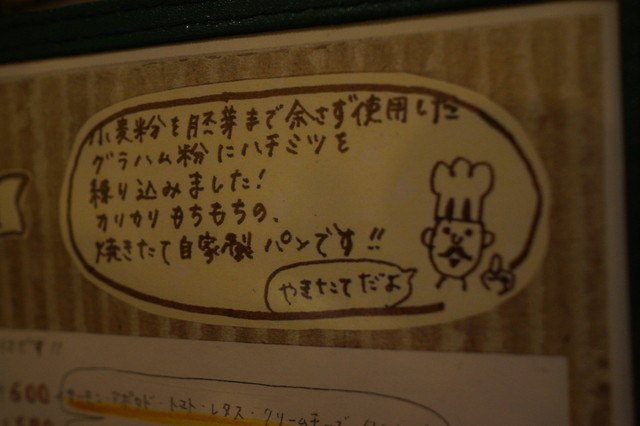 小麦粉を胚芽まで余さず使用した
グラハム粉にハチミツを
練り込みました!
カリカリもちもちの、
焼きたて自家製パンです!!
やきたてだよ
です!!
600
サーモン・アボカド・トマト・レタス・クリームチーズ